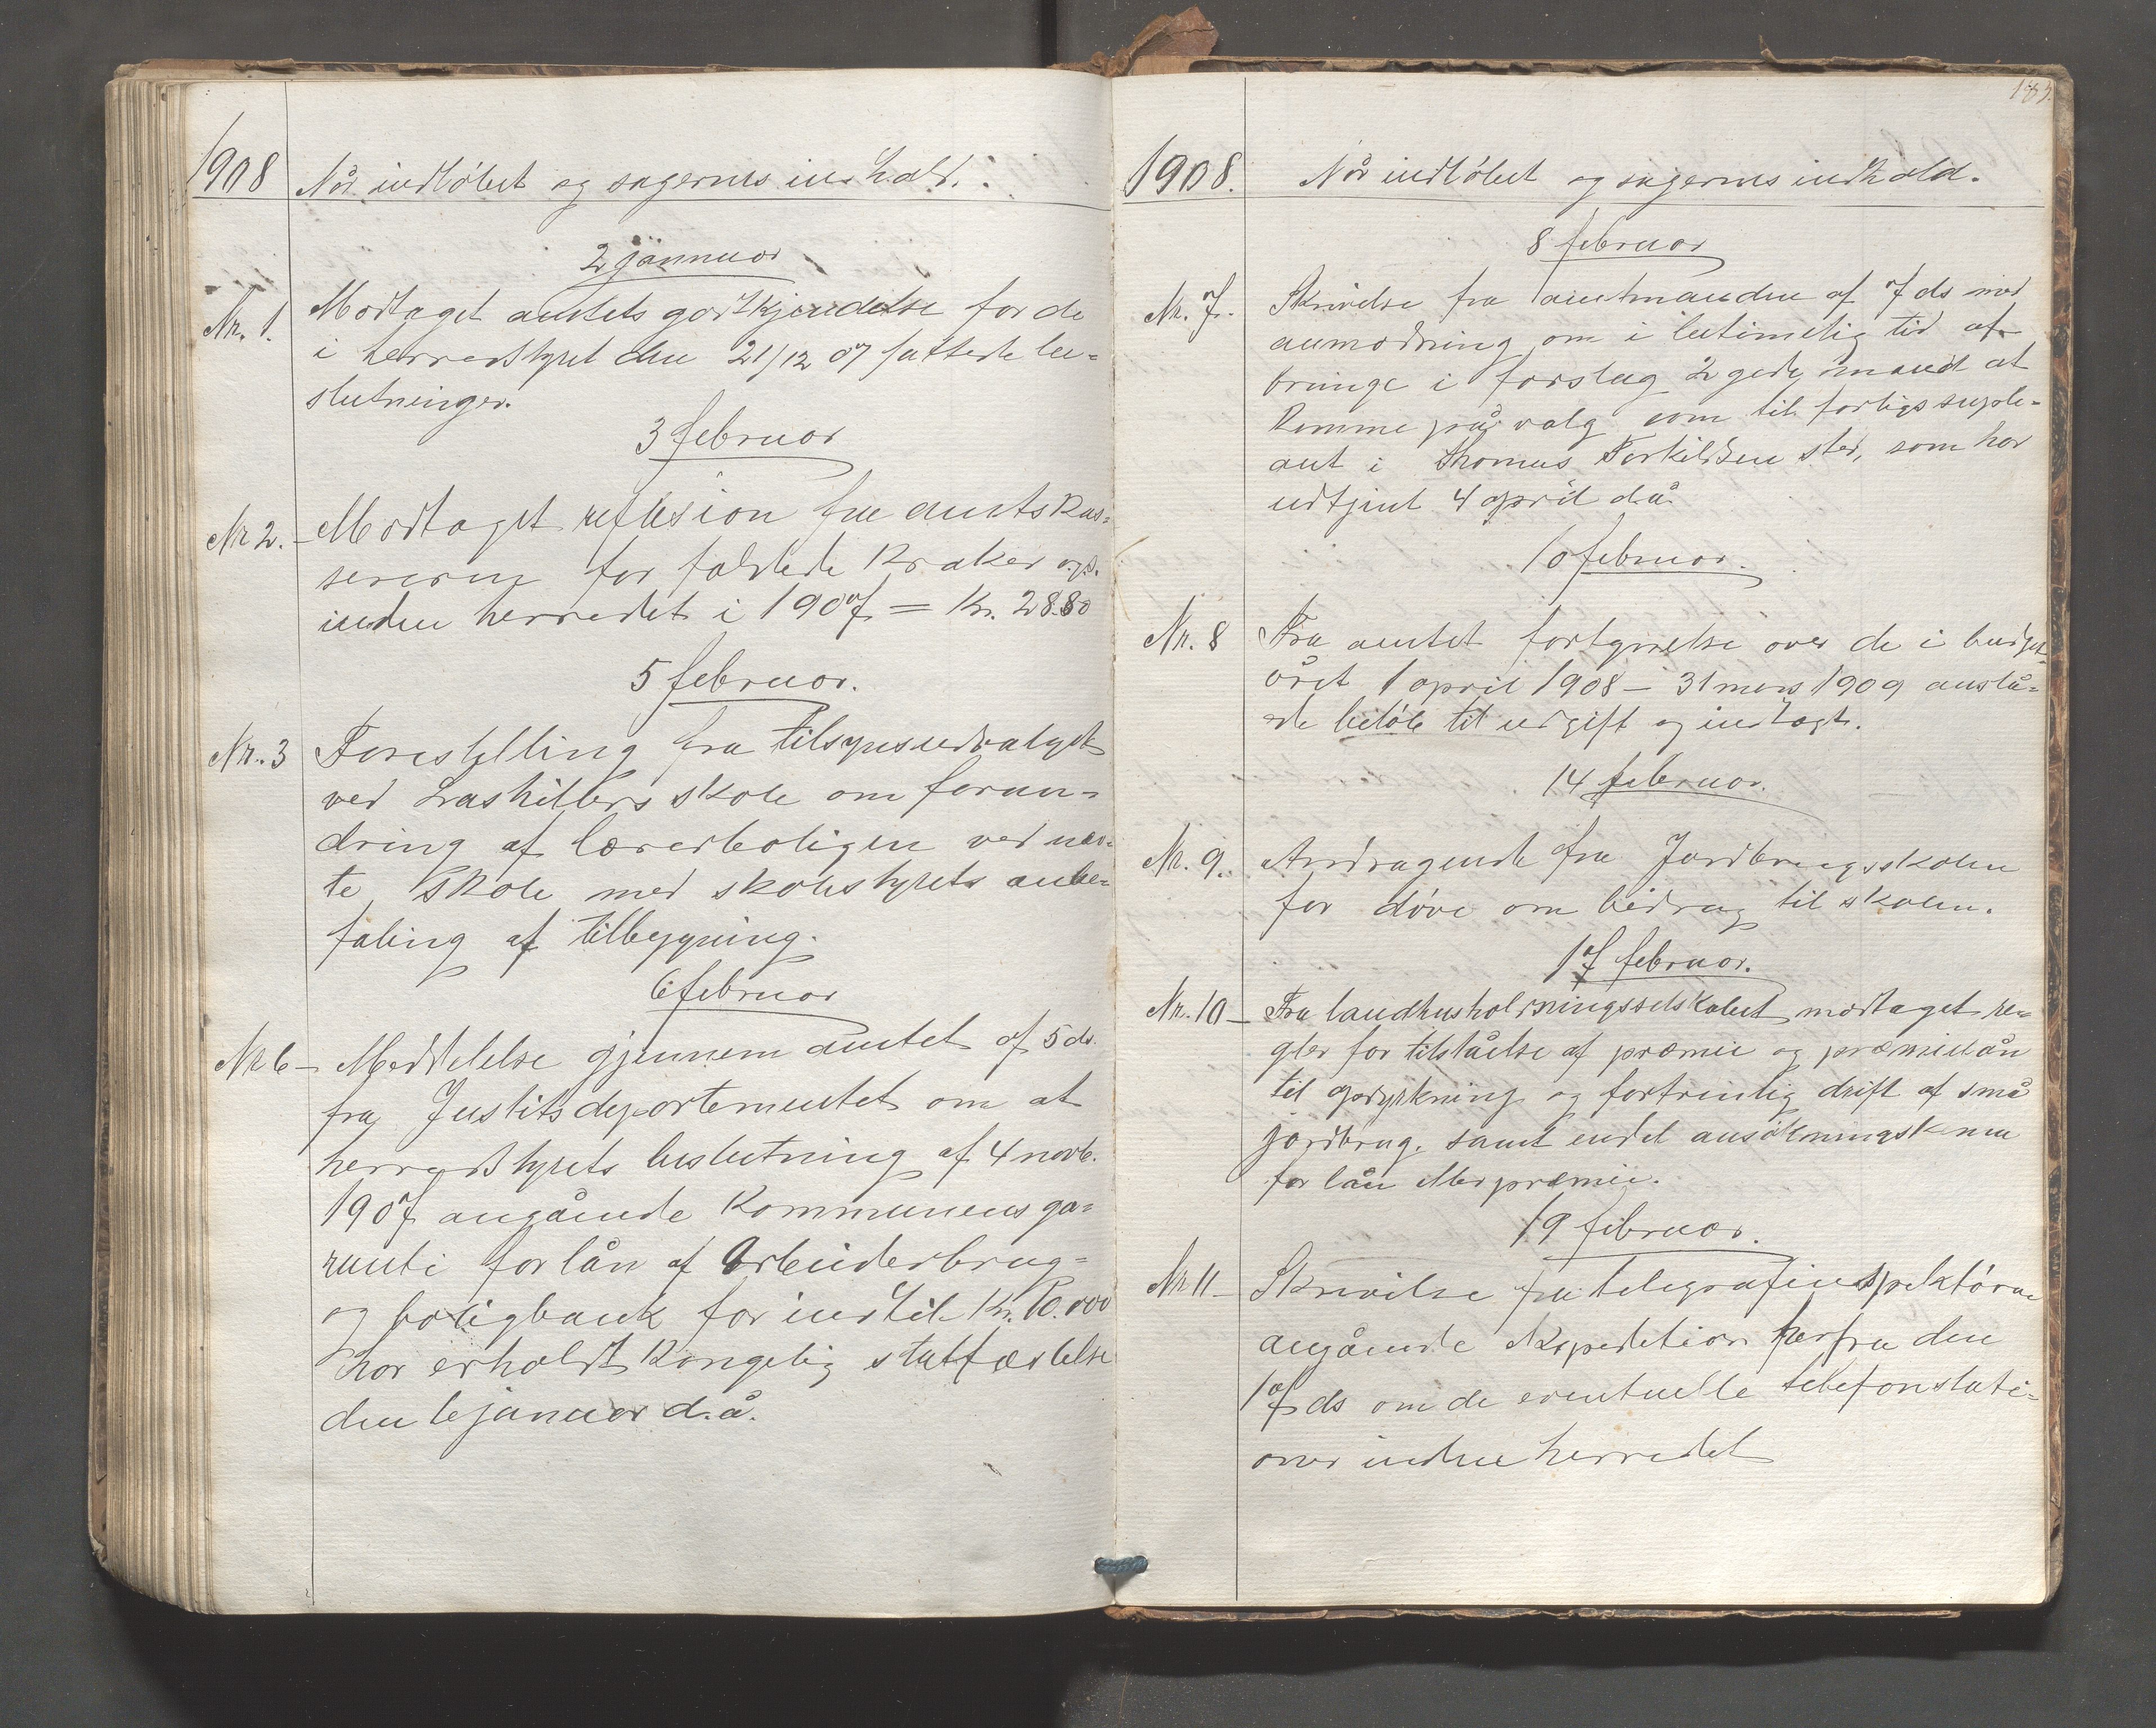 1908 Når indløbet og sagernes indhold.
2 jannuar
Nr. 1. Modtaget amtets godtkjendelse for de
i herredstyret den 21/12 07 fattede be-
slutninger.
3 februar
Nr 2. Modtaget reflusion fra amtskas-
sereren for faldede kraker ogs.
inden herredet i 1907 = Kr. 28.80
5 februar.
Nr. 3 Forestilling fra tilsynsudvalget
ved skole om foran-
dring af lærerboligen ved næv-
te skole med skolestyrets anbe-
faling af tilbygning.
6 februar
Nr 6 - Meddelelse gjennem amtet af 5 ds.
fra Justitsdepartementet om at
herredstyrets beslutning af 4 novb.
1907 angående kommunens ga-
ranti for lån af Arbeiderbrug-
og boligbank for indtil Kr. 10.000
har erholdt kongelig stadfæstelse
den 6 januar d.å.
183.
1908. Når indløbet og sagernes indhold.
8 februar
Nr. 7. Skrivelse fra amtmanden af 7 ds med
anmodning om i betimelig tid at
bringe i forslag 2 gode mænd at
komme på valg som til forligssuple-
ant i Thomas Torkildsen sted, som har
udtjent 4 april d.å.
10 februar.
Nr. 8 Fra amtet fortegnelse over de i budget-
året 1 april 1908 - 31 mars 1909 anslå-
ede beløb til udgift og indtægt.
14 februar.
Nr. 9. Andragende fra Jordbrugsskolen
for døve om bidrag til skolen.
17 februar.
Nr. 10 - Fra landhusholdningsselskabet modtaget re-
gler for tilståelse af præmie og præmielån
til opdyrkning og fortrinlig drift af små
jordbrug. samt endel ansøkningskema
for lån eller præmie.
19 februar.
Nr 11 - Skrivelse fra telegrafinspektøren
angående ekspedition herfra den
17 ds om de eventuelle telefonstati-
oner inden herredet